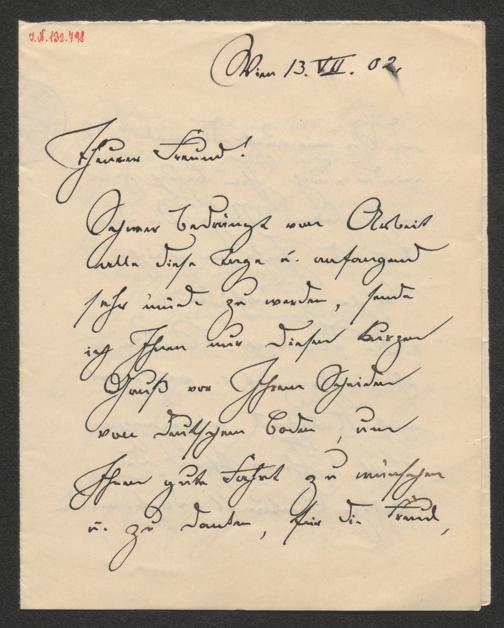 J. N. 132.798
Wien 13. VII. 02.
Theurer Freund!
Schwer bedrängt von Arbeit
alle diese Tage u. anfangend
sehr müde zu werden, sende
ich Ihnen nur diesen kurzen
Gruß vor Ihrem Scheiden
von deutschem Boden, um
Ihnen gute Fahrt zu wünschen
u. zu danken, für die Freud,